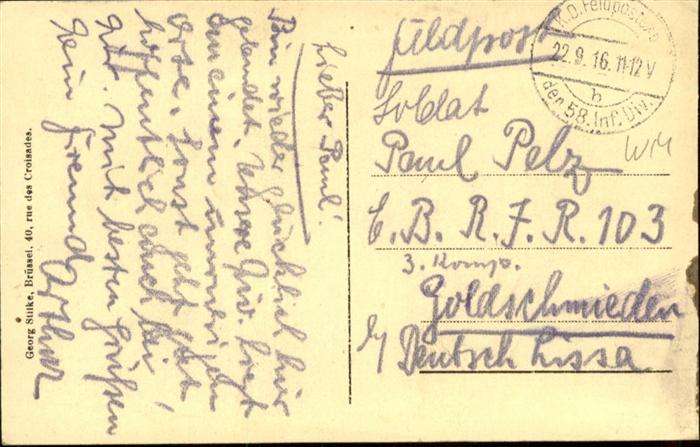 Lieber Paul!
Bin wieder glücklich hier
gelandet. Unsere Div. liegt
an einem
Orte. Sonst geht
hoffentlich auch bei
Mit besten Grüßen
Dein Freund Arthur
Georg Stilke, Brüssel, 40, rue des Croisades.
Feldpost
K.D. Feldpost
22.9.16. 11-12 V
b
der 58. Inf. Div.
Soldat
Paul Pelz
E. B. R. J. R. 103
3. Komp.
Goldschmieden
b/ Deutsch Lissa